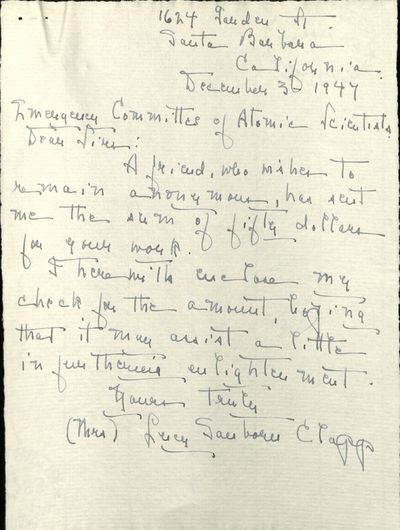 1624 Garden St.
Santa Barbara
California.
December 3 - 1947
Emergency Committee of Atomic Scientists,
Dear Sirs:
A friend, who wishes to
remain anonymous, has sent
me the sum of fifty dollars
for your work.
I herewith enclose my
check for the amount, hoping
that it may assist a little
in furthering enlightenment.
Yours Truly
(Mrs) Lucy Sanborn Clapp